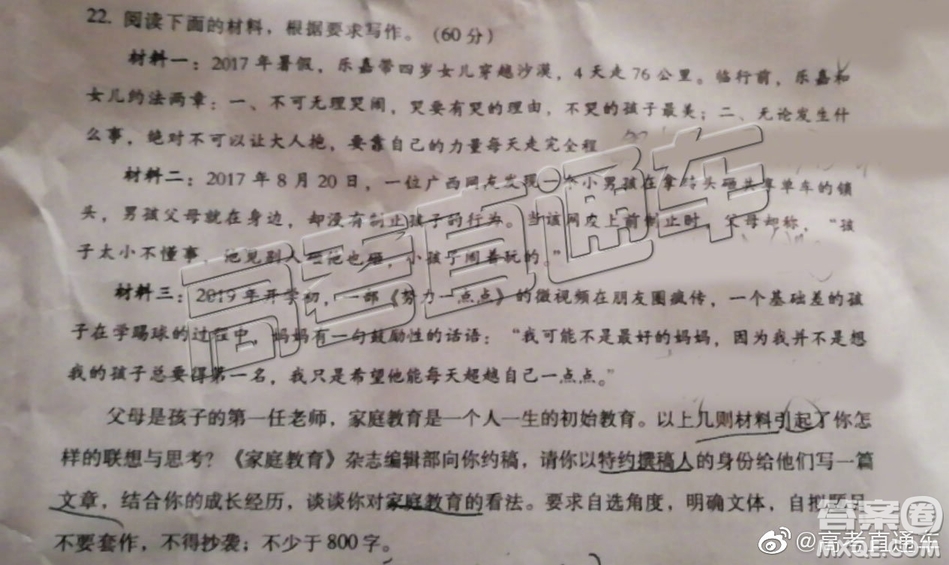 22. 阅读下面的材料，根据要求写作。（60分）
材料一：2017年暑假，乐嘉带四岁女儿穿越沙漠，4天走76公里。临行前，乐嘉和
女儿约法两章：一、不可无理哭闹，哭要有哭的理由，不哭的孩子最美；二、无论发生什
么事，绝对不可以让大人抱，要靠自己的力量每天走完全程
材料二：2017年8月20日，一位广西网友发现一个小男孩在拿 头砸共享单车的锁
头，男孩父母就在身边，却没有制止孩子的行为。当该网友上前制止时，父母却称，“孩
子太小不懂事，他见别人 他也砸，小孩子闹着玩的。”
材料三：2019年开学初，一部《努力一点点》的微视频在朋友圈疯传，一个基础差的孩
子在学踢球的过程中，妈妈有一句鼓励性的话语：“我可能不是最好的妈妈，因为我并不是想
我的孩子总要得第一名，我只是希望他能每天超越自己一点点。”
父母是孩子的第一任老师，家庭教育是一个人一生的初始教育。以上几则材料引起了你怎
样的联想与思考？《家庭教育》杂志编辑部向你约稿，请你以特约撰稿人的身份给他们写一篇
文章，结合你的成长经历，谈谈你对家庭教育的看法。要求自选角度，明确文体，自拟题目
不要套作，不得抄袭；不少于800字。
高考直通车
答案圈
MXQE.COM
@高考直通车